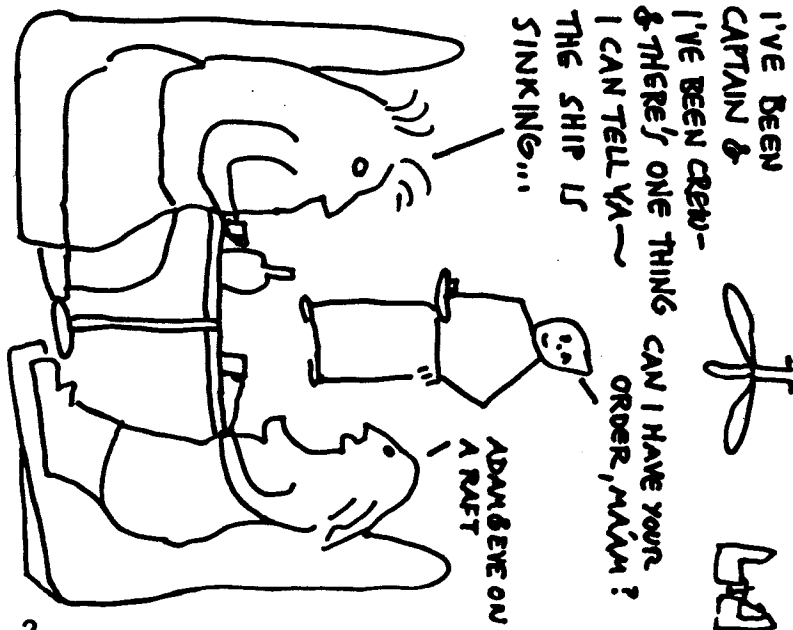 I'VE BEEN
CAPTAIN &
I'VE BEEN CREW-
& THERE'S ONE THING
I CAN TELL YA~
THE SHIP IS
SINKING...
CAN I HAVE YOUR
ORDER, MA'AM?
ADAM & EVE ON
A RAFT